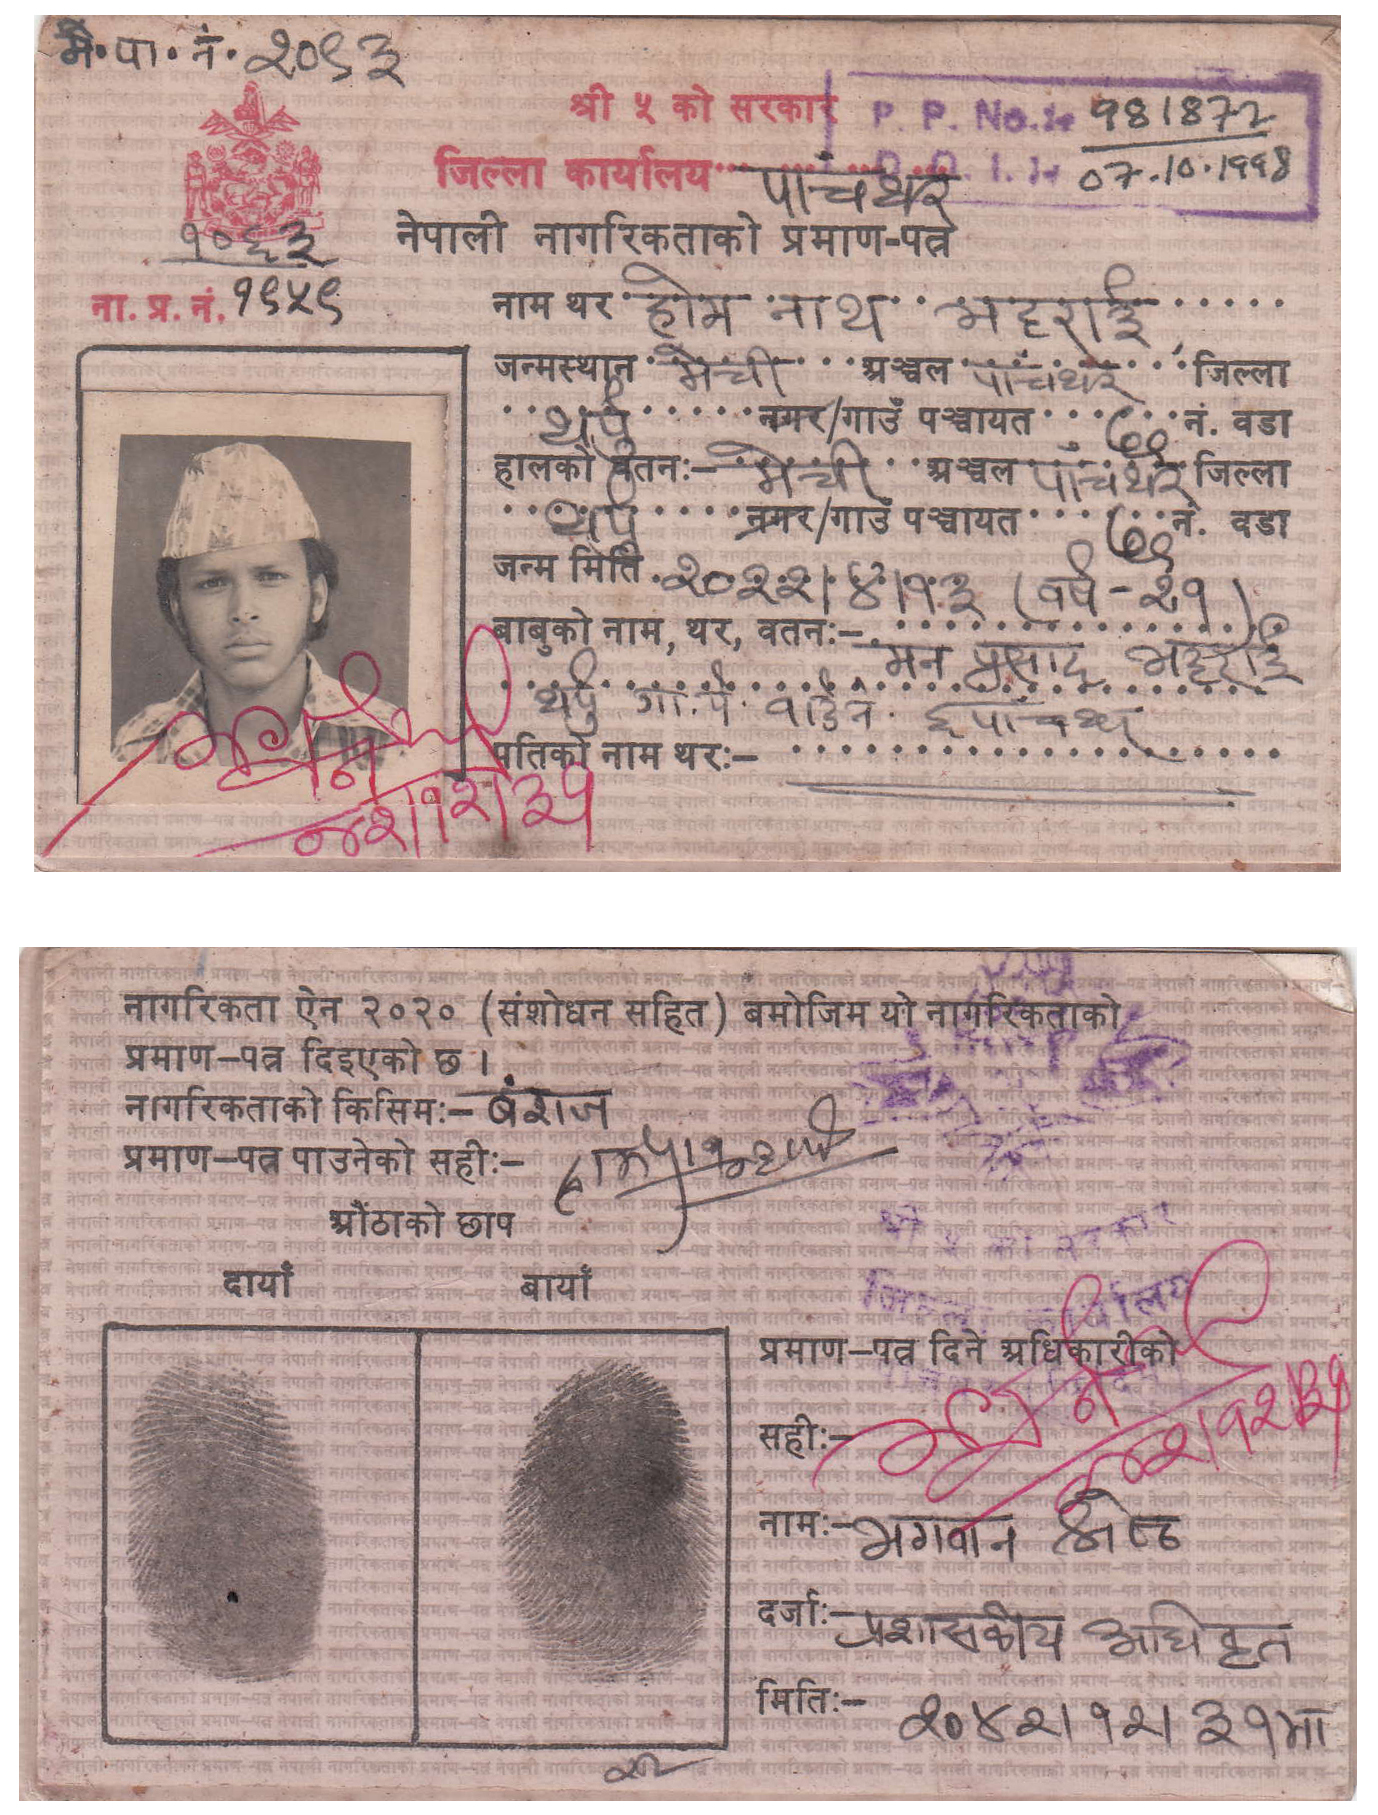 मे. पा. नं. २०९३
श्री ५ को सरकार
P. P. No.:- 981872
जिल्ला कार्यालय पांचथर
07.10.1998
नेपाली नागरिकताको प्रमाण-पत्र
१०६३
ना. प्र. नं. १९५९
नाम थर होम नाथ भट्टराई
जन्मस्थान मेची अञ्चल पांचथर जिल्ला
थर्पु नगर/गाउँ पञ्चायत नं. वडा
हालको वतनः- मेची अञ्चल पांचथर जिल्ला
थर्पु नगर/गाउँ पञ्चायत नं. वडा
जन्म मिति २०२२।४।१३ (वर्ष - २१)
बाबुको नाम, थर, वतनः- मन प्रसाद भट्टराई
थर्पु गा. पं. वार्ड नं. ६ पांचथर
पतिको नाम थरः-
नागरिकता ऐन २०२० (संशोधन सहित) बमोजिम यो नागरिकताको
प्रमाण-पत्र दिइएको छ ।
नागरिकताको किसिमः- बंशज
प्रमाण-पत्र पाउनेको सहीः-
औंठाको छाप
दायाँ बायाँ
श्री ५ को सरकार
जिल्ला कार्यालय
प्रमाण-पत्र दिने अधिकारीको
सहीः-
नामः- भगवान श्रेष्ठ
दर्जाः- प्रशासकीय अधिकृत
मितिः- २०४२।१२।३१ मा